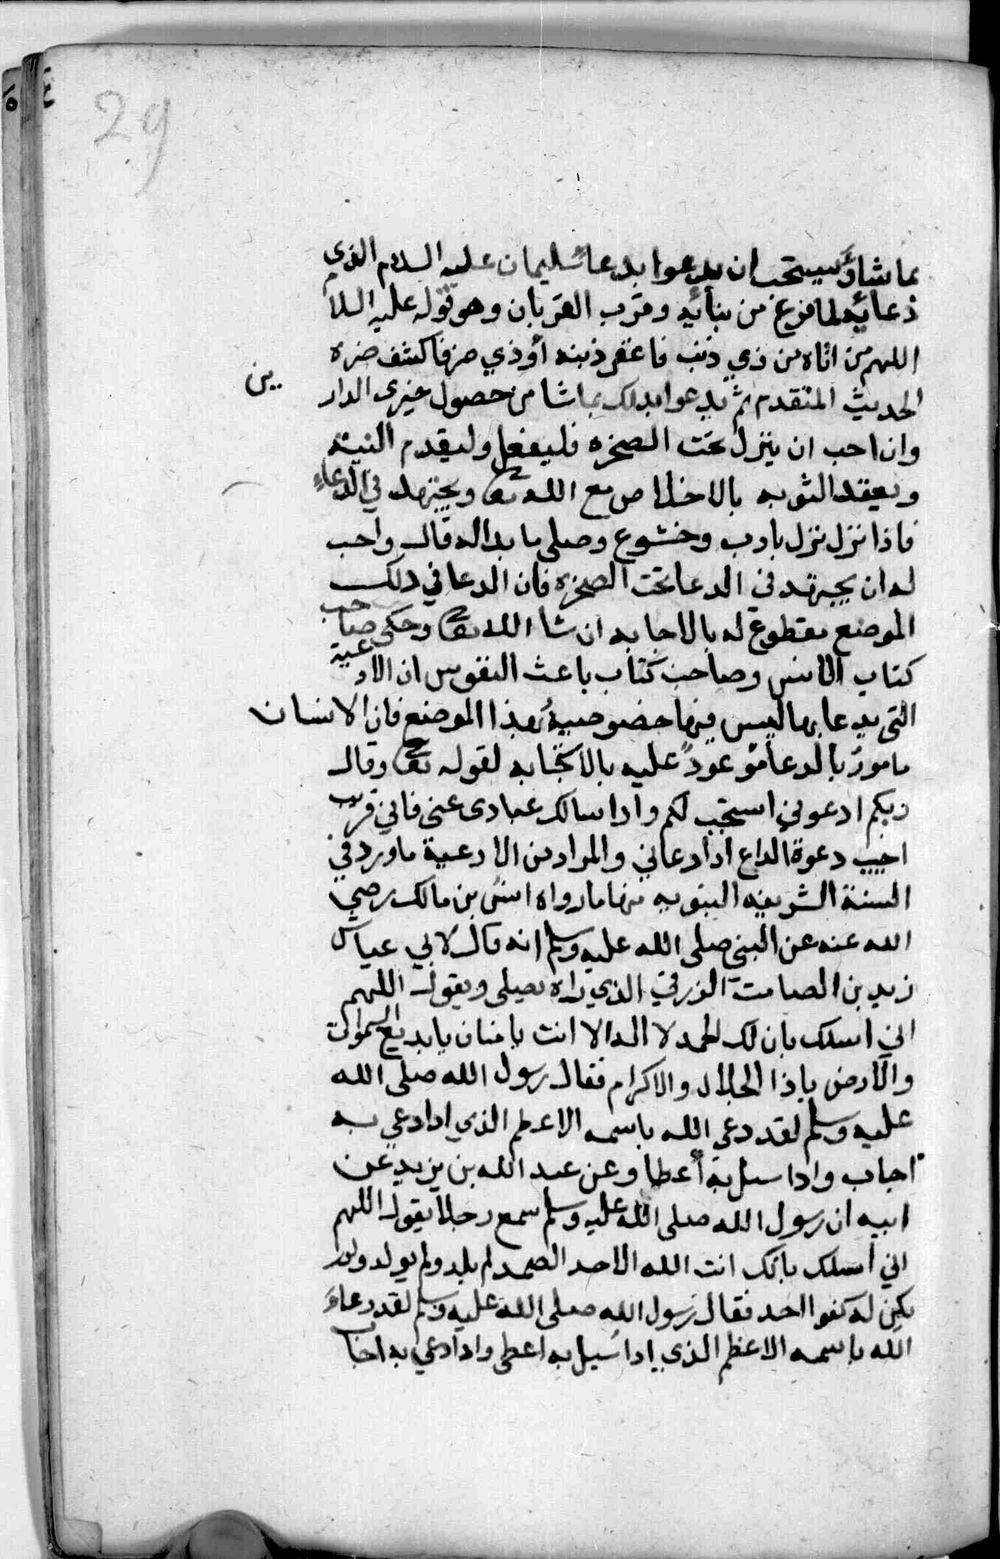 29
بما شاء ويستحب ان يدعوا بدعا سليمان عليه السلام الذي
دعابه لما فرغ من بنائه وقرب القربان وهو قوله عليه السلا
اللهم من اتاه من ذي ذنب فاغفر ذنبه أو ذي ضر فاكشف ضره
الحديث المتقدم ثم يدعوا بذلك بما شا من حصول خيري الدار
ين
وان احب ان ينزل تحت الصخره فليفعل وليقدم النية
ويعقد التوبه بالاخلاص مع الله تعا ويجتهد في الدعاء
فاذا نزل نزل بادب وخشوع وصلى ما بداله قال واحب
له ان يجتهد في الدعا تحت الصخره فان الدعا في ذلك
الموضع مقطوع له بالاجابه ان شا الله تعا وحكى صاحب
كتاب الانس وصاحب كتاب باعث النفوس ان الادعية
التي يدعا بها ليس فيها خصوصية بهذا الموضع فان الانسان
مامورٌ بالدعا موعودٌ عليه بالاجابه لقوله تعا وقال
ربكم ادعوني استجب لكم واذا سالك عبادي عني فاني قريب
اجيب دعوة الداع اذا دعاني والمراد من الادعية ما ورد في
السنة الشريفه النبويه منها ما رواه انس بن مالك رضي
الله عنه عن النبي صلى الله عليه وسلم انه قال لابي عياش
زيد بن الصامت الزرقي الذي راه يصلي ويقول اللهم
اني اسلك بان لك الحمد لا اله الا انت يا منان يا بديع السموات
والارض ياذا الجلال والاكرام فقال رسول الله صلى الله
عليه وسلم لقد دعى الله باسمه الاعظم الذي اذا دعي به
اجاب واذا سيل به أعطا وعن عبد الله بن يزيد عن
ابيه ان رسول الله صلى الله عليه وسلم سمع رجلا يقول اللهم
اني أسلك بانك انت الله الاحد الصمد لم يلد ولم يولد ولم
يكن له كفوا احد فقال رسول الله صلى الله عليه وسلم لقد دعاء
الله باسمه الاعظم الذي اذا سيل به اعطى واذا دعي به اجاب